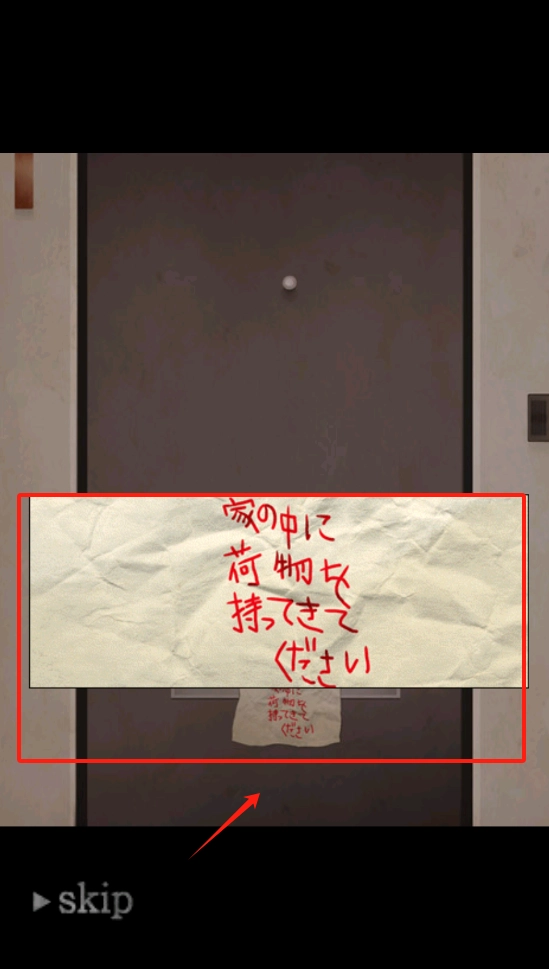 家の中に
荷物を
持ってきて
ください
中に
荷物を
持ってきて
ください
skip